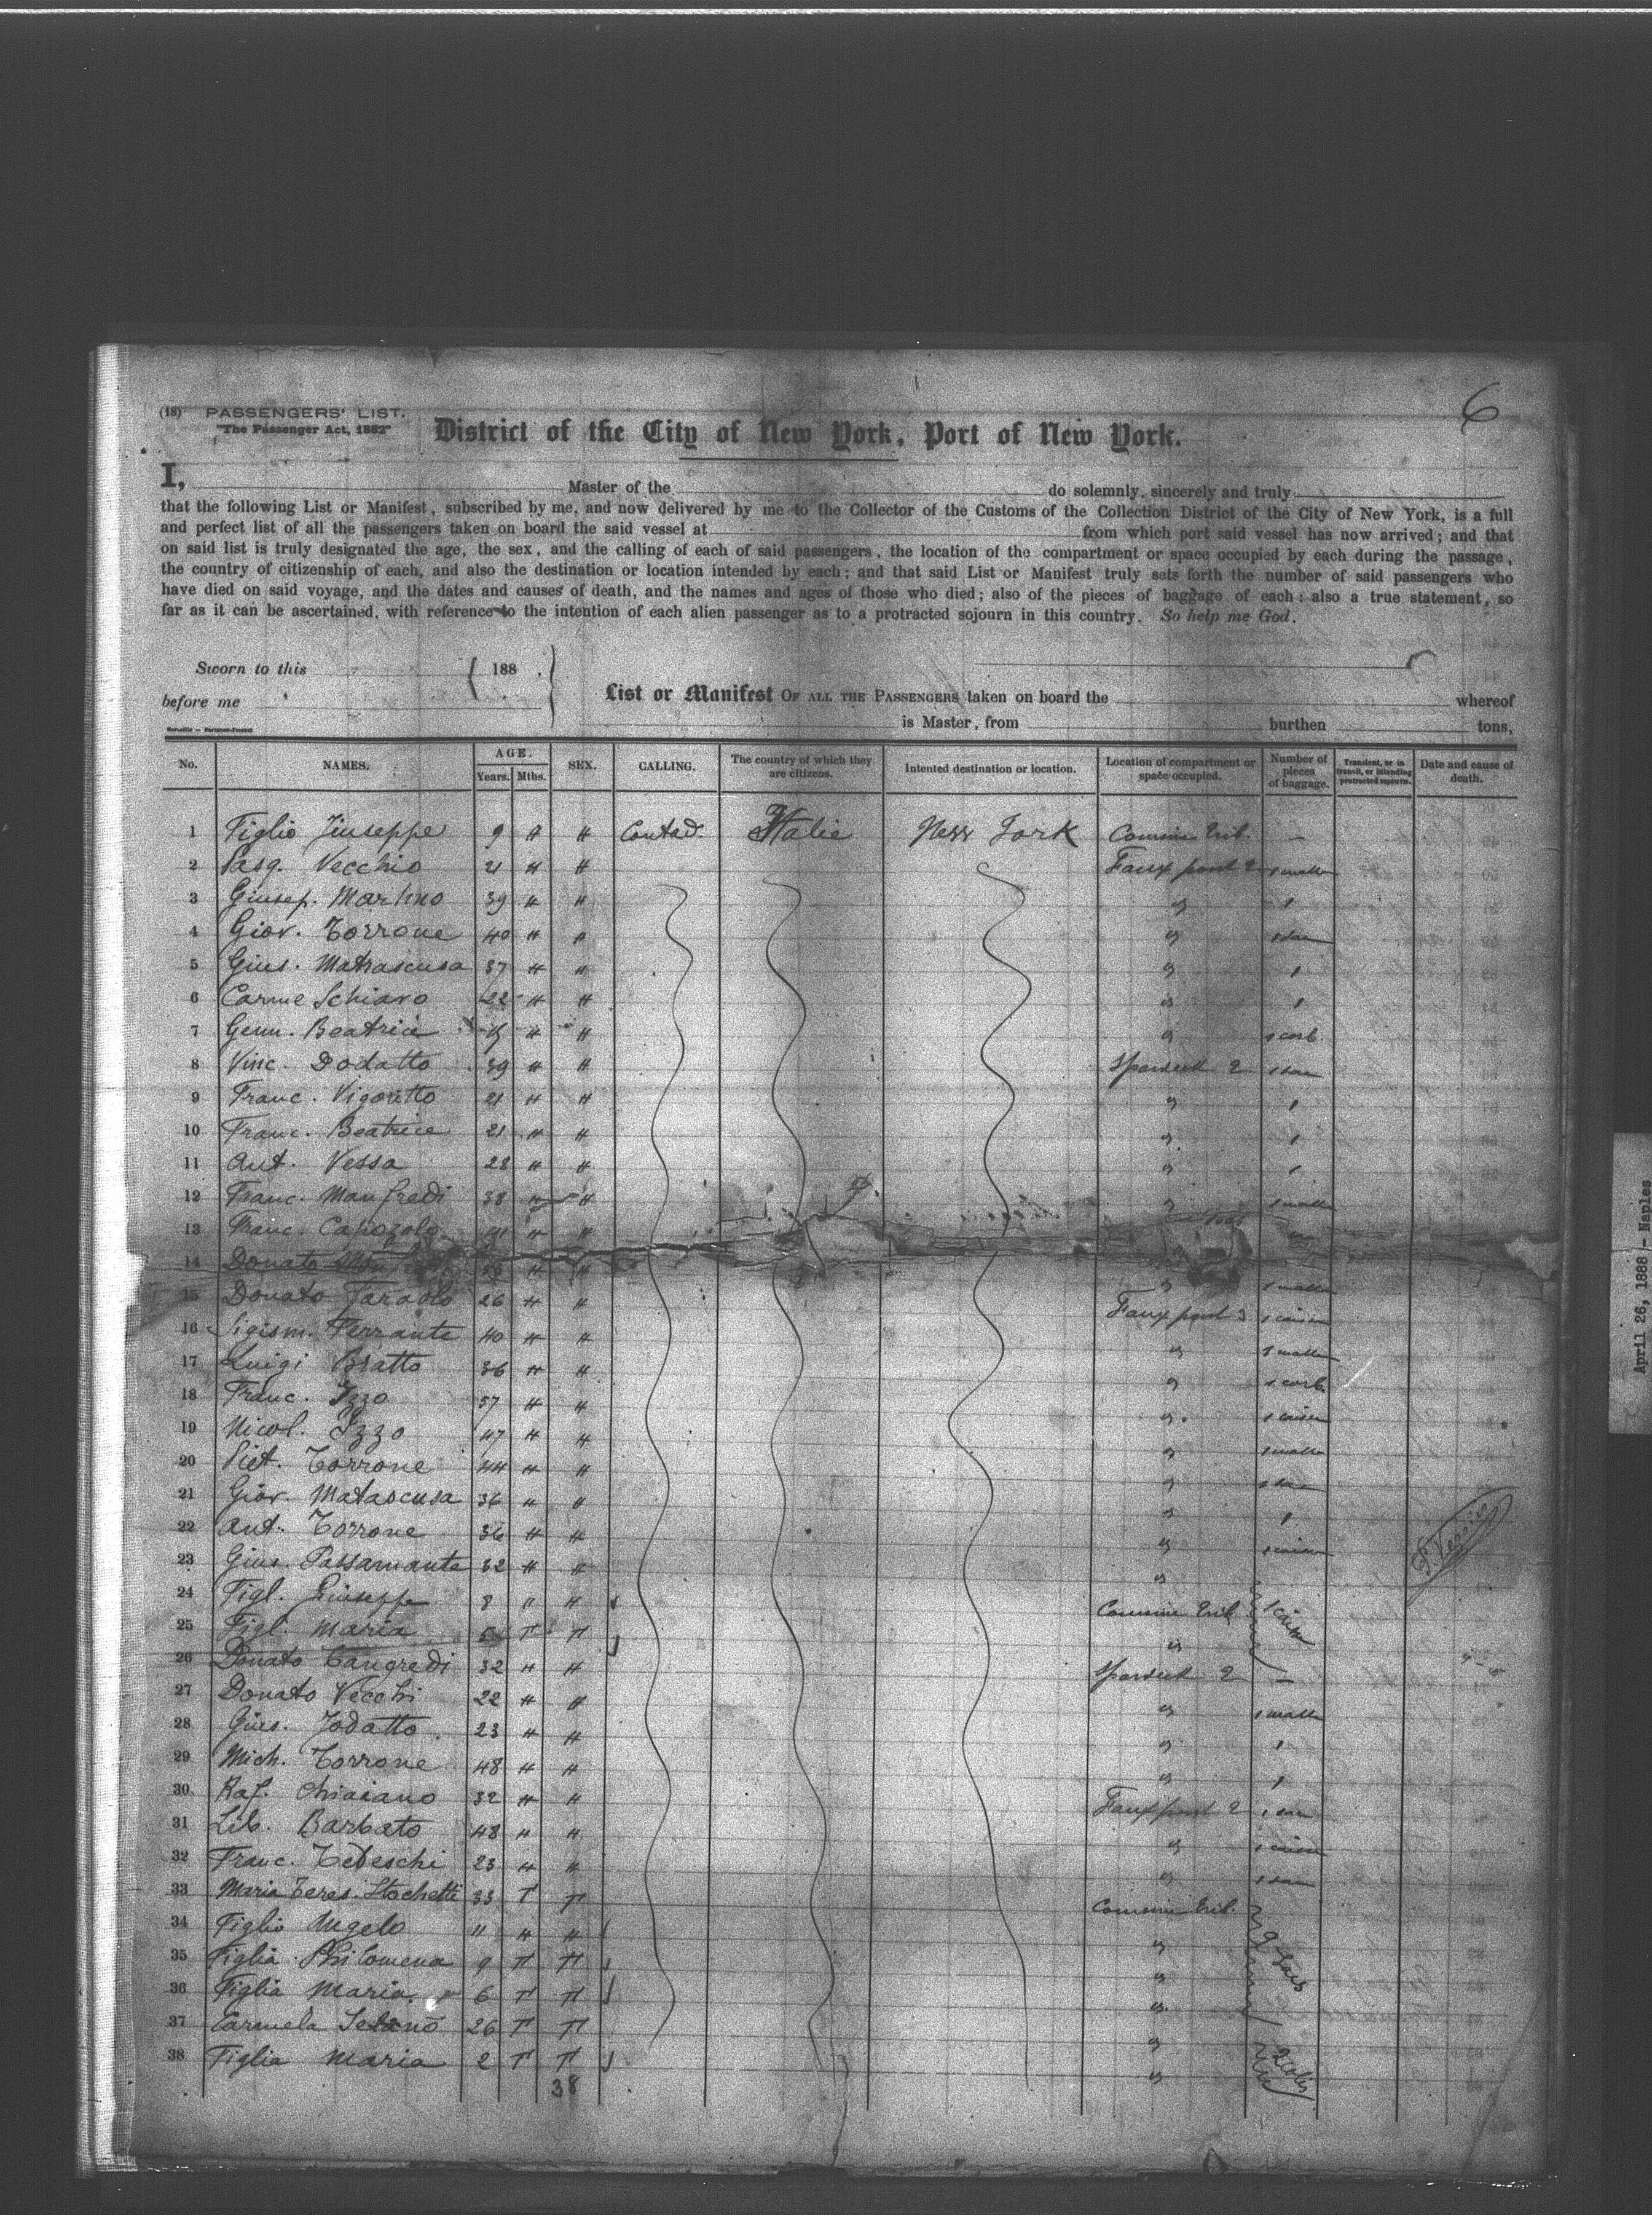 6
(18) PASSENGERS' LIST.
"The Passenger Act, 1882"
District of the City of New York, Port of New York.
I, Master of the do solemnly, sincerely and truly
that the following List or Manifest, subscribed by me, and now delivered by me to the Collector of the Customs of the Collection District of the City of New York, is a full
and perfect list of all the passengers taken on board the said vessel at from which port said vessel has now arrived; and that
on said list is truly designated the age, the sex, and the calling of each of said passengers, the location of the compartment or space occupied by each during the passage,
the country of citizenship of each, and also the destination or location intended by each; and that said List or Manifest truly sets forth the number of said passengers who
have died on said voyage, and the dates and causes of death, and the names and ages of those who died; also of the pieces of baggage of each; also a true statement, so
far as it can be ascertained, with reference to the intention of each alien passenger as to a protracted sojourn in this country. So help me God.
Sworn to this 188
before me
List or Manifest OF ALL THE PASSENGERS taken on board the whereof
is Master, from burthen tons,
No. NAMES. AGE. Years. Mths. SEX. CALLING. The country of which they are citizens. Intented destination or location. Location of compartment or space occupied. Number of pieces of baggage. Transient, or in transit, or intending protracted sojourn. Date and cause of death.
1 Figlio Giuseppe 9 H H Contad. Italie New York
2 Pasq. Vecchio 21 H H Faux pont 2 1 malle
3 Giusep. Martino 39 H H " "
4 Giov. Torrone 40 H H " 1 sac
5 Gius. Matrascusa 37 H H " "
6 Carme Schiavo 22 H H " "
7 Genn. Beatrice H H " 1 corb.
8 Vinc. Dodatto 39 H H Spardeck 2 1 sac
9 Franc. Vigoretto 21 H H " "
10 Franc. Beatrice 21 H H " "
11 Ant. Vessa 28 H H " "
12 Franc. Manfredi 38 H H " 1 malle
13 Franc. Capozolo H H
14 Donato H H " 1 malle
15 Donato Faraolo 26 H H Faux pont 3 1 caisse
16 Sigism. Ferrante 40 H H " 1 malle
17 Luigi Bratto 36 H H " 1 corb.
18 Franc. Izzo 57 H H " 1 caisse
19 Nicol. Izzo 47 H H " 1 malle
20 Piet. Torrone 44 H H " 1 sac
21 Giov. Matascusa 36 H H " "
22 Ant. Torrone 36 H H " 1 caisse
23 Gius. Passamante 32 H H "
24 Figl. Giuseppe 8 H H 1 caisse
25 Figl. Maria 5 F F "
26 Donato Tangredi 32 H H Spardeck 2 —
27 Donato Vecchi 22 H H " 1 malle
28 Gius. Jodatto 23 H H " "
29 Mich. Torrone 48 H H " "
30 Raf. Chiaiano 32 H H Faux pont 2 1 sac
31 Lib. Barbato 48 H H " 1 caisse
32 Franc. Tedeschi 23 H H " 1 sac
33 Maria Teres. Stochetti 33 F F
34 Figlio Angelo 11 H H "
35 Figlia Philomena 9 F F " 2 sacs
36 Figlia Maria 6 F F "
37 Carmela 26 F F "
38 Figlia Maria 2 F F " 2 colis
38
April 26, 1888 - Naples